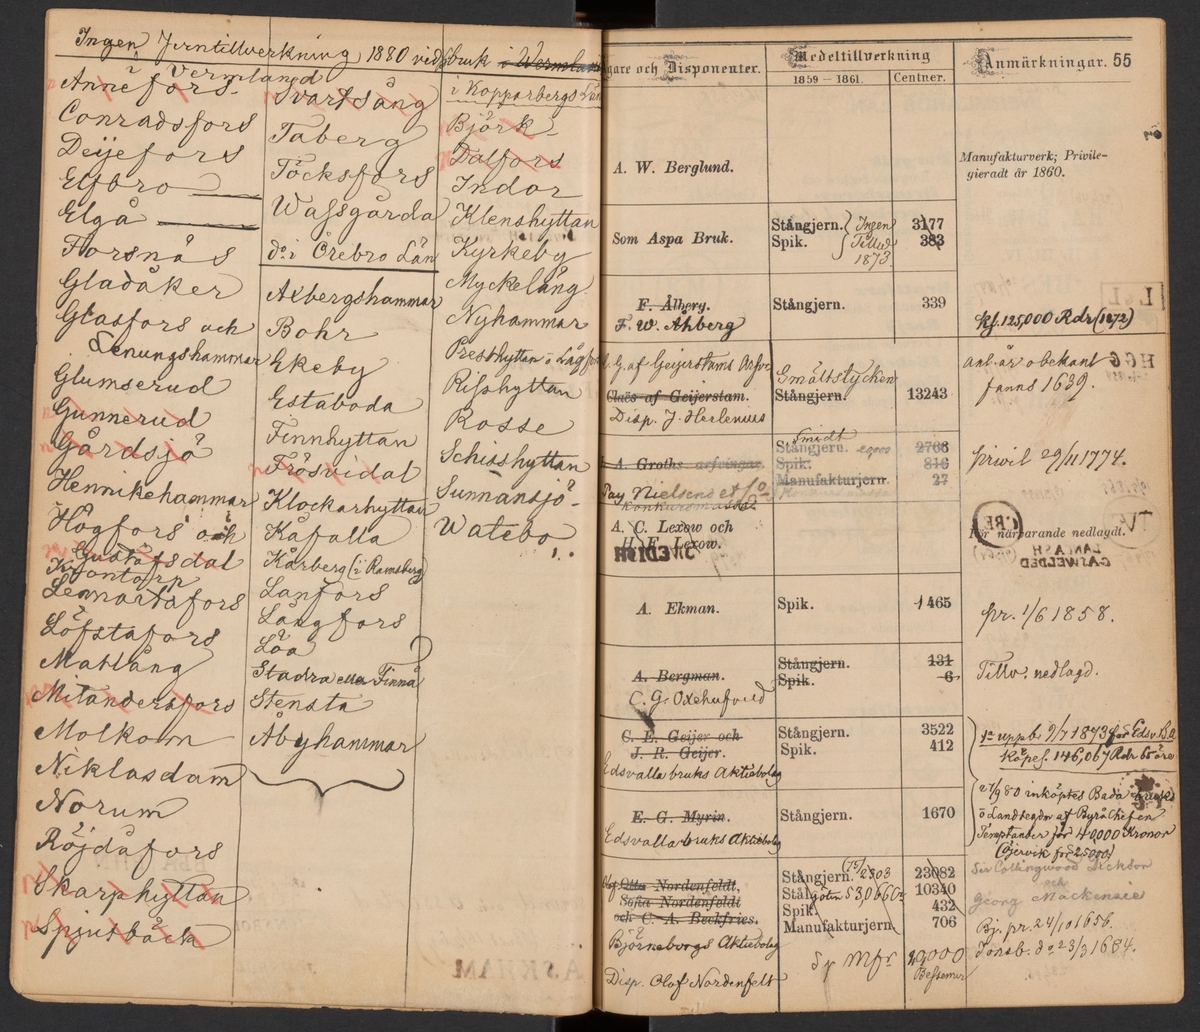 Ingen Jerntillverkning 1880 vid bruk i Wermland
i Vermland
Annefors
Conradsfors
Deijefors
Elfbro
Elgå
Forsnäs
Gladåker
Glasfors och
Lenungshammar
Glumserud
Gunnerud
Gårdsjö
Hennikehammar
Högfors och
Gustafsdal
Krontorp
Lennartsfors
Löfstafors
Matlång
Mitandersfors
Molkom
Niklasdam
Norum
Röjdåfors
Skarphyttan
Spjutbäck
Svartsång
Taberg
Töcksfors
Wassgårda
do i Örebro Län
Axbergshammar
Bohr
Ekeby
Estaboda
Finnhyttan
Frösvidal
Klockarhyttan
Kåfalla
Kårberg (i Ramsberg)
Lanfors
Långfors
Löa
Stadra eller Finnå
Stensta
Åbyhammar
i Kopparbergs Län
Björk
Dalfors
Indor
Klenshyttan
Kyrkeby
Myckelång
Nyhammar
Presthyttan i
Risshyttan
Rosse
Schisshyttan
Sunnansjö
Watebo
gare och Disponenter.
Medeltillverkning
1859 - 1861.
Centner.
Anmärkningar. 55
A. W. Berglund.
Manufakturverk; Privile-
gieradt år 1860.
Som Aspa Bruk.
Stångjern. 3177
Spik. 383
Ingen
Tillv.
1873
F. Ålberg.
F. W. Åhberg
Stångjern. 339
kf. 125,000 Rdr (1872)
L & L
G. af Geijerstams Arfv.
Claës af Geijerstam.
Disp. J. Herlenius
Smältstycken
Stångjern. 13243
anl. år obekant
fanns 1639.
H G G
A. Groths arfvingar.
Nielsen et Co
konkursmassa
Smidt
Stångjern. 2766
Spik. 816
Manufakturjern. 27
privil 29/11 1774.
A. C. Lexow och
H. E. Lexow.
För närvarande nedlagdt.
CBE
A. Ekman.
Spik. 1465
pr. 1/6 1858.
A. Bergman.
C. G. Oxehufvud
Stångjern. 131
Spik. 6
Tillv. nedlagd.
C. E. Geijer och
J. R. Geijer.
Edsvalla bruks Aktiebolag
Stångjern. 3522
Spik. 412
uppb. 9/7 1873 för Edsv. B.
Köpes. 146,067 Rdr 65 öre
E. G. Myrin.
Edsvalla bruks Aktiebolag
Stångjern. 1670
27/9 80 inköptes Bada bruk
ö Landtegdn af ByråChefen
Temptander för 40,000 Kronor
(Gjervik för 25000)
Olof
Otto Nordenfeldt,
Sofia Nordenfeldt
och C. A. Beckfries.
Björneborgs Aktiebolag
Disp. Olof Nordenfelt
Stångjern. 23082
(75) 2303
Stål 10340
Spik. 432
Manufakturjern. 706
Mfr 20,000
Bessemer
Sir Collingwood Dickson
och
Georg Mackensie
Bj. pr. 24/10 1656.
Tonsb. do 23/3 1684.
ASKHAM